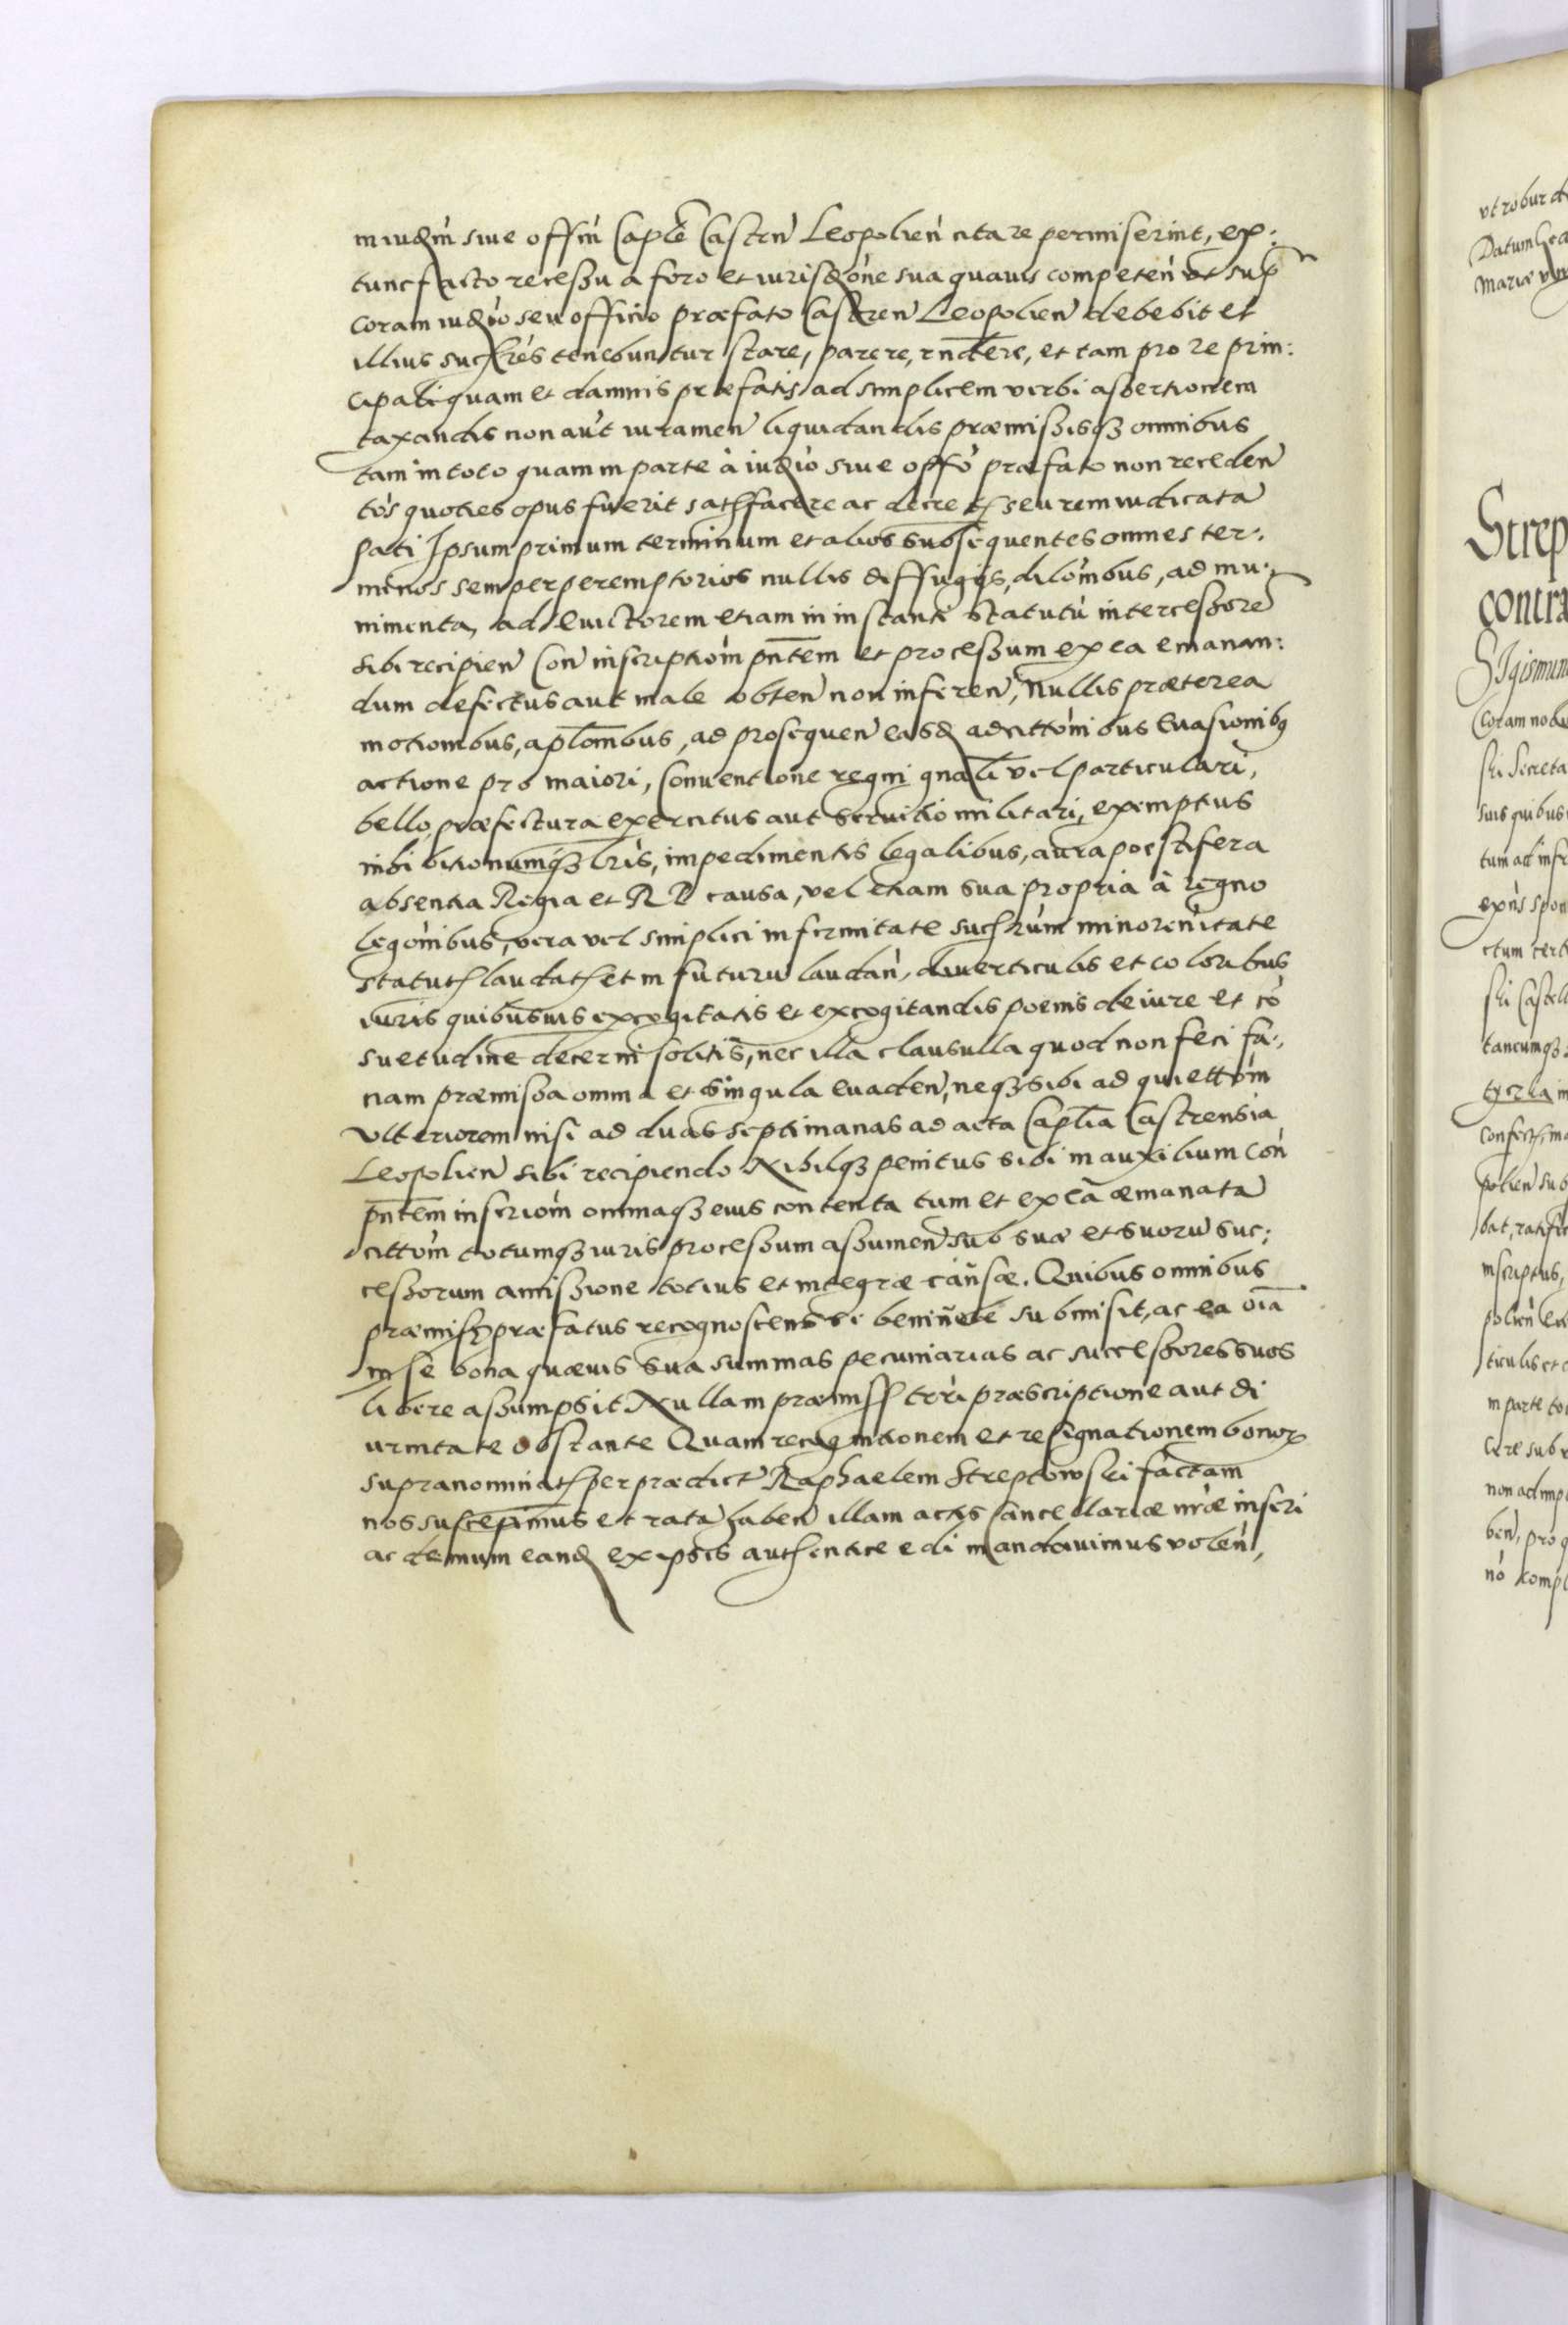 in iudm̀ siue offm̀ Capłe Castreǹ Leopolieǹ citare permiserint, ex:
tunc facto recessu a foro et iurisdòne sua quauis competeǹ ut sup
coram iudìo seu officio præfato Castren̄ Leopolien̄ debebit et
illius succ̄res tenebuntur stare, parere, rn̄dere, et tam pro re prin:
cipali quam et damnis præfatis ad simplicem verbi assertionem
taxandis non aùt iuramen̄ liquidandis præmissisqȝ omnibus
tam in toto quam in parte à iudìo siue offò præfato non receden̄
tòs quoties opus fuerit satisfacere ac decret seu rem iudicatā
pati Ipsum primum terminum et alios subsequentes omnes ter:
minos semper peremptorios nullis diffugijs, dilòmbus, ad mu:
nimenta, ad Euictorem etiam in instanti statutù intercessorē
sibi recipien̄ Con̄ inscriptiòm pn̄tem et processum ex ea emanan:
dum defectus aut male obten̄ non inferen̄, Nullis præterea
motionibus, aplōmbus, ad prosequen̄ easd adcittòmibus Euasionibȝ
actione pro maiori, Conuentione regni gnali vel particulari,
bello, præfectura exercitus aut seruitio militari, exemptius
inhibitionumqȝ lrìs, impedimentis legalibus, aura poestifera
absentia Regia et R P causa, vel etiam sua propria à regno
legònibus, vera vel simplici infirmitate succrùm minorenitate
statut laudat et in futuru laudan̄, diuerticulis et coloribus
iuris quibusuis excogitatis et excogitandis poenis de iure et cò
suetudine decerni solitis, nec illa clausulla quod non feci fa:
ciam præmissa omnia et singula euaden̄, neqȝ sibi ad quiettòm
Vlteriorem nisi ad duas septimanas ad acta Caplīa Castrensia
Leopolien̄ sibi recipiendo Nihilqȝ penitus sibi in auxilium Con̄
pn̄tem inscriòm omniaqȝ eius contenta tum et ex eā æmanata
cittòm totumqȝ iuris processum assumen̄ sub suæ et suoru suc:
cessorum amissione totius et integræ causæ. Quibus omnibus
præmiss præfatus recognoscens se beniuole submisit, ac ea oīa
in se bona quæuis sua summas pecuniarias ac successores suos
libere assumpsit Nullam præmiss terri præscriptione aut di
urnitate obstante Quam recognitionem et resignationem bonorȝ
supranominat per prædict Raphaelem Streptowski factam
nos suscepimus et rata haben̄ illam actis Cancellariæ nr̄æ inseri
ac demum eand ex ipsis authentice edi mandauimus volen̄,
vt robur d
Datum Cra
Mariæ vi
Strep
contra
Sigismun
Coram nob
ski Secreta
suis quibus
tum ad infr
ctum terr
ski Castell
tancumqȝ
polien̄ sub
bat, ratific
inscriptus,
ticulis et c
in parte to
non ad imp
nò comp